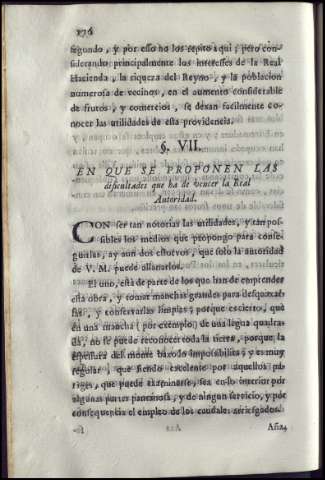 176
segundo, y por esso no los repito aqui; pero con-
siderando principalmente los interesses de la Real
Hacienda, la riqueza del Reyno, y la poblacion
numerosa de vecinos, en el aumento considerable
de frutos, y comercios, se dexan facilmente co-
nocer las utilidades de esta providencia.
§. VII.
EN QUE SE PROPONEN LAS
dificultades que ha de vencer la Real
Autoridad.
CON ser tan notorias las utilidades, y tan pos-
sibles los medios que propongo para conse-
guirlas, ay aun dos estorvos, que solo la autoridad
de V. M. puede allanarlos.
El uno, està de parte de los que han de emprender
esta obra, y tomar manchas grandes para desquaxar-
las, y conservarlas limpias; porque es cierto, que
en una mancha (por exemplo) de una legua quadra-
da, no se puede reconocer toda la tierra, porque la
espesura del monte baxo lo impossibilita; y es muy
regular, que siendo excelente por aquellos pa-
rages, que puede examinarse, sea en lo interior por
algunas partes pantanosa, y de ningun servicio, y por
consequencia el empleo de los caudales arriesgados.
Aña-